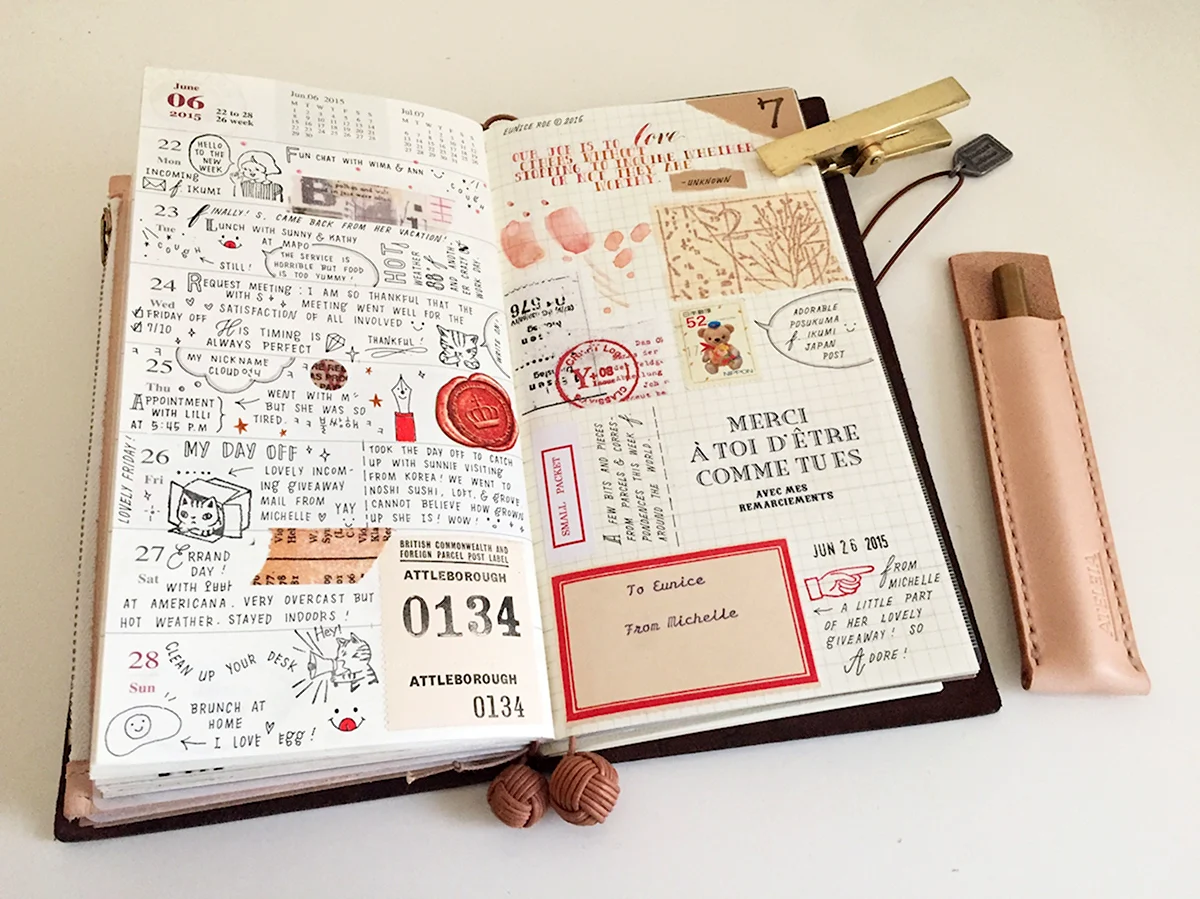 June
06
2015
22 to 28
26 week
Jun.06 2015
M T W T F S S
Jul.07
M T W T F S S
22
Mon
HELLO
TO THE
NEW
WEEK
INCOMING
IKUMI
FUN CHAT WITH WIMA & ANN
COUGH
23
Tue
FINALLY! S, CAME BACK FROM HER VACATION!
LUNCH WITH SUNNY & KATHY
AT MAPO
COUGH
STILL!
THE SERVICE IS
HORRIBLE BUT FOOD
IS TOO YUMMY!
HOT!
WEATHER
88°f
AND ANOTH-
ER CRAZY
WORK DAY.
24
Wed
REQUEST MEETING: I AM SO THANKFUL THAT THE
WITH S MEETING WENT WELL FOR THE
SATISFACTION OF ALL INVOLVED
FRIDAY OFF
7/10
HIS TIMING IS
ALWAYS PERFECT
THANKFUL!
25
Thu
MY NICKNAME
APPOINTMENT
WITH LILLI
AT 5:45 P.M
WENT WITH M
BUT SHE WAS SO
TIRED.
26
Fri
LOVELY FRIDAY!
MY DAY OFF
LOVELY INCOM-
ING GIVEAWAY
MAIL FROM
MICHELLE YAY
TOOK THE DAY OFF TO CATCH
UP WITH SUNNIE VISITING
FROM KOREA! WE WENT TO
NOSHI SUSHI, LOFT, & GROVE
I CANNOT BELIEVE HOW GROWN
UP SHE IS! WOW!
27
Sat
ERRAND
DAY!
WITH
AT AMERICANA. VERY OVERCAST BUT
HOT WEATHER. STAYED INDOORS!
28
Sun
CLEAN UP YOUR DESK
Hey!
BRUNCH AT
HOME
I LOVE Egg!
BRITISH COMMONWEALTH AND
FOREIGN PARCEL POST LABEL
ATTLEBOROUGH
0134
ATTLEBOROUGH
0134
EUNICE ROE © 2016
7
OUR JOB IS TO love
OTHERS WITHOUT
STOPPING TO INQUIRE WHETHER
OR NOT THEY ARE
WORTHY.
-UNKNOWN
52
NIPPON
ADORABLE
POSUKUMA
f. IKUMI
JAPAN
POST
MERCI
À TOI D'ÊTRE
COMME TU ES
AVEC MES
REMARCIEMENTS
SMALL PACKET
A FEW BITS AND PIECES
FROM PARCELS & CORRES
PONDENCES THIS WEEK f
AROUND THE WORLD.
To Eunice
From Michelle
JUN 26 2015
fROM
MICHELLE
A LITTLE PART
OF HER LOVELY
GIVEAWAY! SO
ADORE!